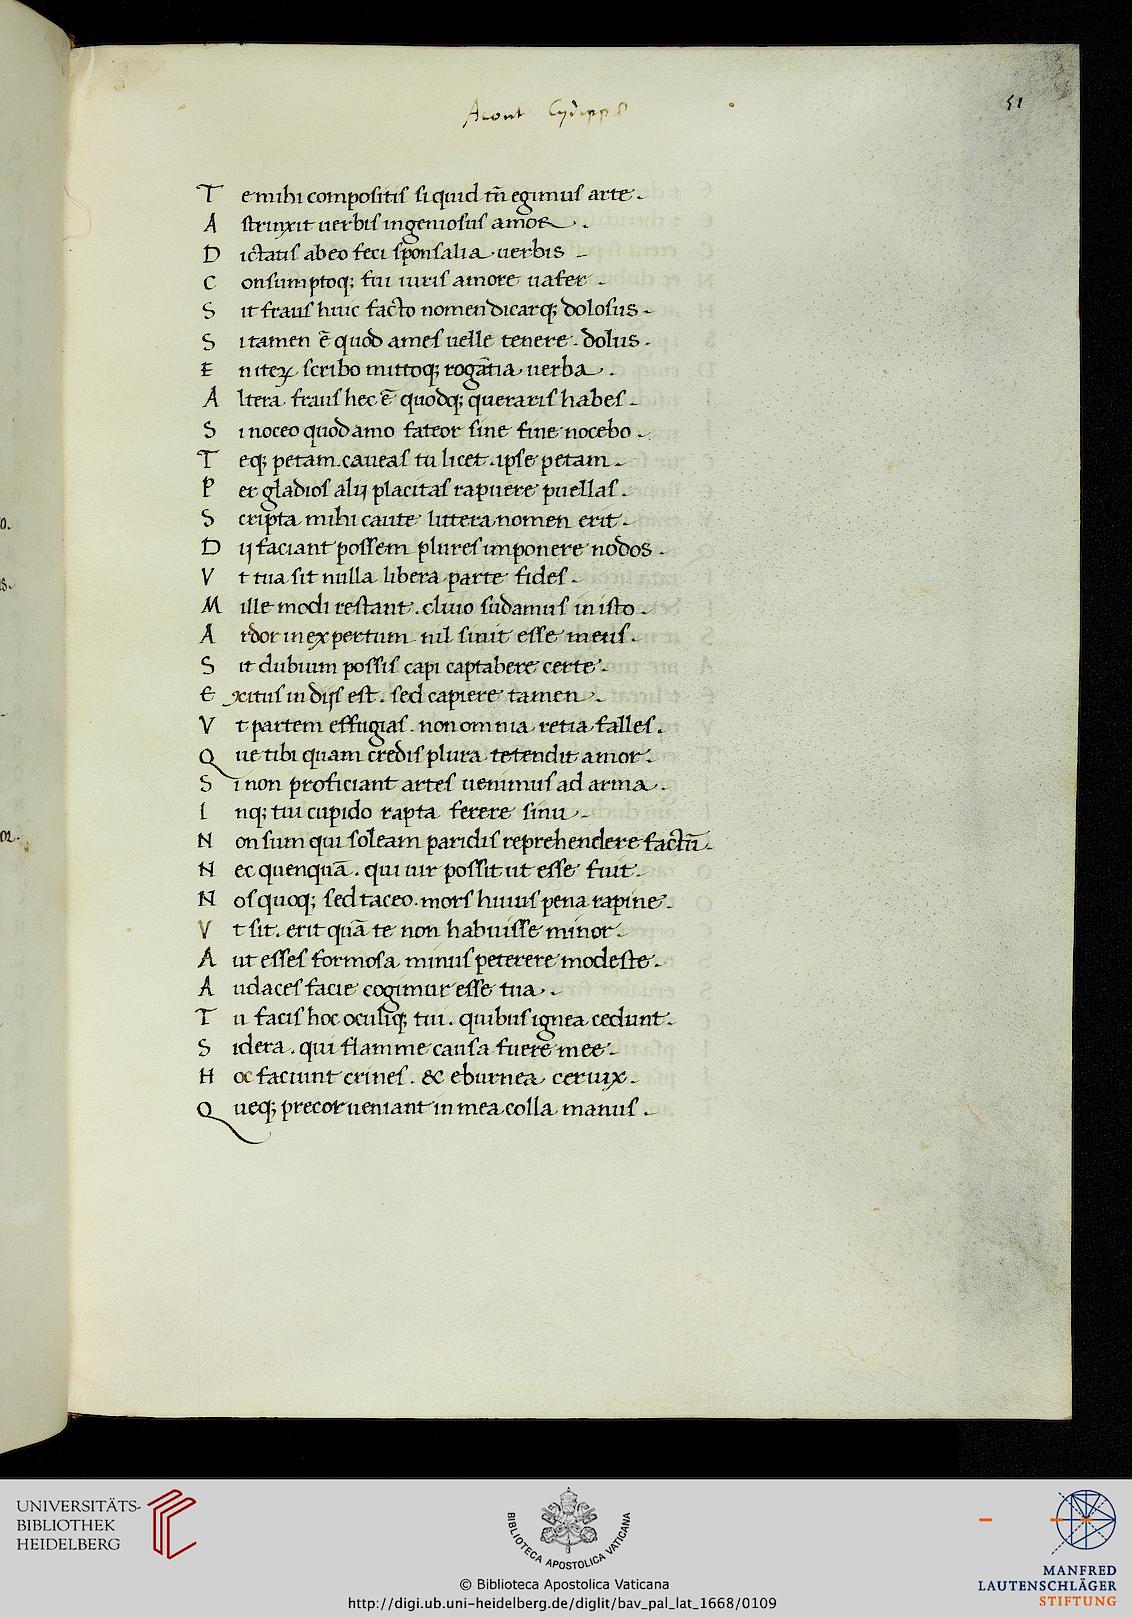 Acont Cydippe
51
Te mihi compositis siquid tñ egimus arte.
Astrinxit uerbis ingeniosus amor.
Dictatis ab eo feci sponsalia uerbis
Consumptoq; fui iuris amore uafer.
Sit fraus huic facto nomen dicarq; dolosus.
Si tamen ē quod ames uelle tenere. dolus.
En iteꝝ scribo mittoq; rogātia uerba.
Altera fraus hec ē quodq; queraris habes.
Si noceo quod amo fateor sine fine nocebo.
Teq; petam. caueas tu licet. ipse petam.
Per gladios alij placitas rapuere puellas.
Scripta mihi caute littera nomen erit.
Dij faciant possem plures imponere nodos.
Vt tua sit nulla libera parte fides.
Mille modi restant. cliuio sudamus in isto.
Ardor in expertum nil sinit esse meus.
Sit dubium possis capi captabere certe.
Exitus in dijs est. sed capiere tamen.
Vt partem effugias. non omnia retia falles.
Que tibi quam credis plura tetendit amor.
Si non proficiant artes uenimus ad arma.
Inq; tui cupido rapta ferere sinu.
Non sum qui soleam paridis reprehendere factū.
Nec quenquā. qui uir possit ut esse fuit.
Nos quoq; sed taceo. mors huius pena rapine.
Vt sit. erit quā te non habuisse minor.
Aut esses formosa minus peterere modeste.
Audaces facie cogimur esse tua.
Tu facis hoc oculiq; tui. quibus ignea cedunt.
Sidera. qui flamme causa fuere mee.
Hoc faciunt crines. & eburnea ceruix.
Queq; precor ueniant in mea colla manus.
UNIVERSITÄTS-
BIBLIOTHEK
HEIDELBERG
BIBLIOTECA APOSTOLICA VATICANA
MANFRED
LAUTENSCHLÄGER
STIFTUNG
© Biblioteca Apostolica Vaticana
http://digi.ub.uni-heidelberg.de/diglit/bav_pal_lat_1668/0109